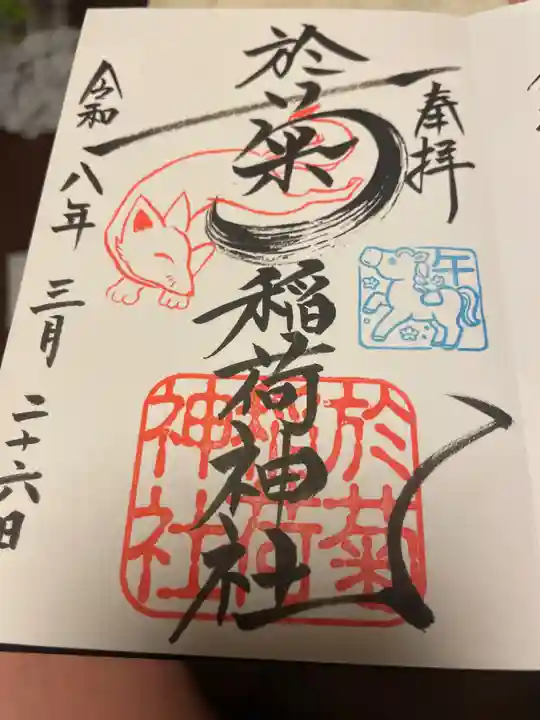 奉拝
於菊稲荷神社
令和八年三月二十六日
午
於菊
稲荷
神社